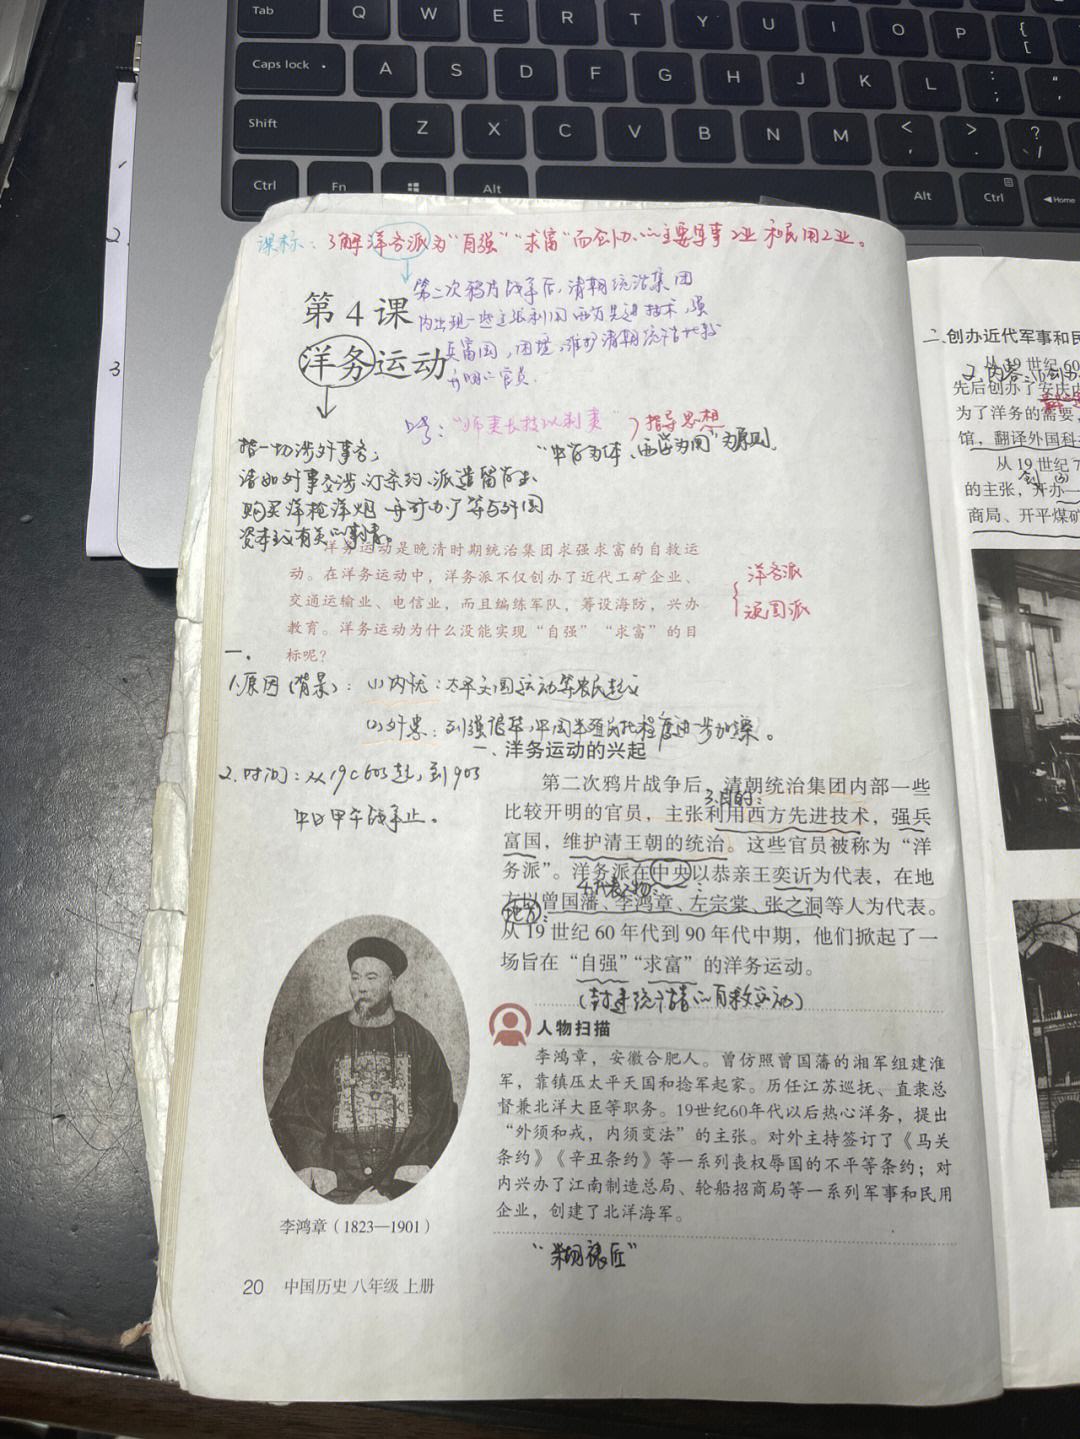 Tab Q W E R T Y U I O P { [
Caps lock A S D F G H J K L : ;
Shift Z X C V B N M < , > . ? /
Ctrl Fn Alt Alt Ctrl Home
2.
3
课标：了解洋务派为“自强”“求富”而创办的主要军事工业和民用工业。
第二次鸦片战争后，清朝统治集团
内出现一些主张利用西方先进技术，强
兵富国，维护清朝统治
开明的官员.
第4课
洋务运动
口号：“师夷长技以制夷” 指导思想
“中学为体、西学为用”为原则.
指一切涉外事务；
诸如外事交涉、订条约、派遣留学生、
购买洋枪洋炮
资本主义有关的事情。
洋务运动是晚清时期统治集团求强求富的自救运
动。在洋务运动中，洋务派不仅创办了近代工矿企业、
交通运输业、电信业，而且编练军队，筹设海防，兴办
教育。洋务运动为什么没能实现“自强”“求富”的目
标呢？
洋务派
顽固派
一.
1.原因（背景）：(1)内忧：太平天国运动等农民起义
(2)外患：列强侵华，中国半殖民地化程度进一步加深。
一、洋务运动的兴起
2.时间：从19C60S起，到90S
中日甲午战争止。
第二次鸦片战争后，清朝统治集团内部一些
3.目的：
比较开明的官员，主张利用西方先进技术，强兵
富国，维护清王朝的统治。这些官员被称为“洋
务派”。洋务派在中央以恭亲王奕䜣为代表，在地
4.代表人物：
地方：
方以曾国藩、李鸿章、左宗棠、张之洞等人为代表。
从19世纪60年代到90年代中期，他们掀起了一
场旨在“自强”“求富”的洋务运动。
（封建统治者的自救运动）
人物扫描
李鸿章，安徽合肥人。曾仿照曾国藩的湘军组建淮
军，靠镇压太平天国和捻军起家。历任江苏巡抚、直隶总
督兼北洋大臣等职务。19世纪60年代以后热心洋务，提出
“外须和戎，内须变法”的主张。对外主持签订了《马关
条约》《辛丑条约》等一系列丧权辱国的不平等条约；对
内兴办了江南制造总局、轮船招商局等一系列军事和民用
企业，创建了北洋海军。
“糊裱匠”
李鸿章（1823—1901）
20 中国历史 八年级 上册
二、创办近代军事和民
从19世纪60
2.内容：
先后创办了安庆内
为了洋务的需要，
馆，翻译外国科
从19世纪7
的主张，开办一
商局、开平煤矿